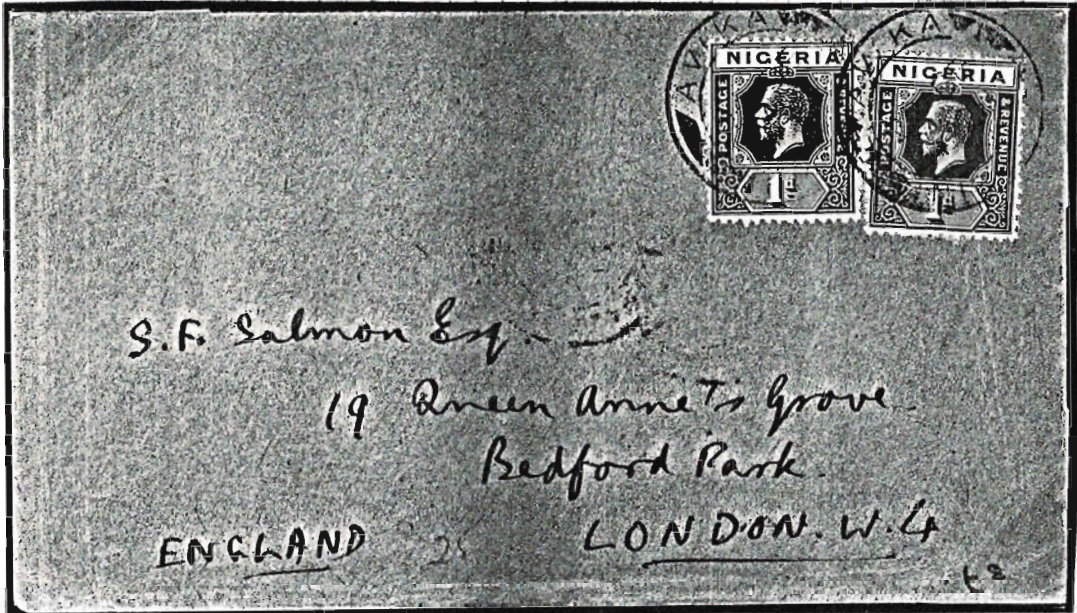 NIGERIA
POSTAGE
& REVENUE
1d
NIGERIA
POSTAGE
& REVENUE
1d
S.F. Salmon Esq.
19 Queen Anne's Grove
Bedford Park.
ENGLAND
LONDON. W.4